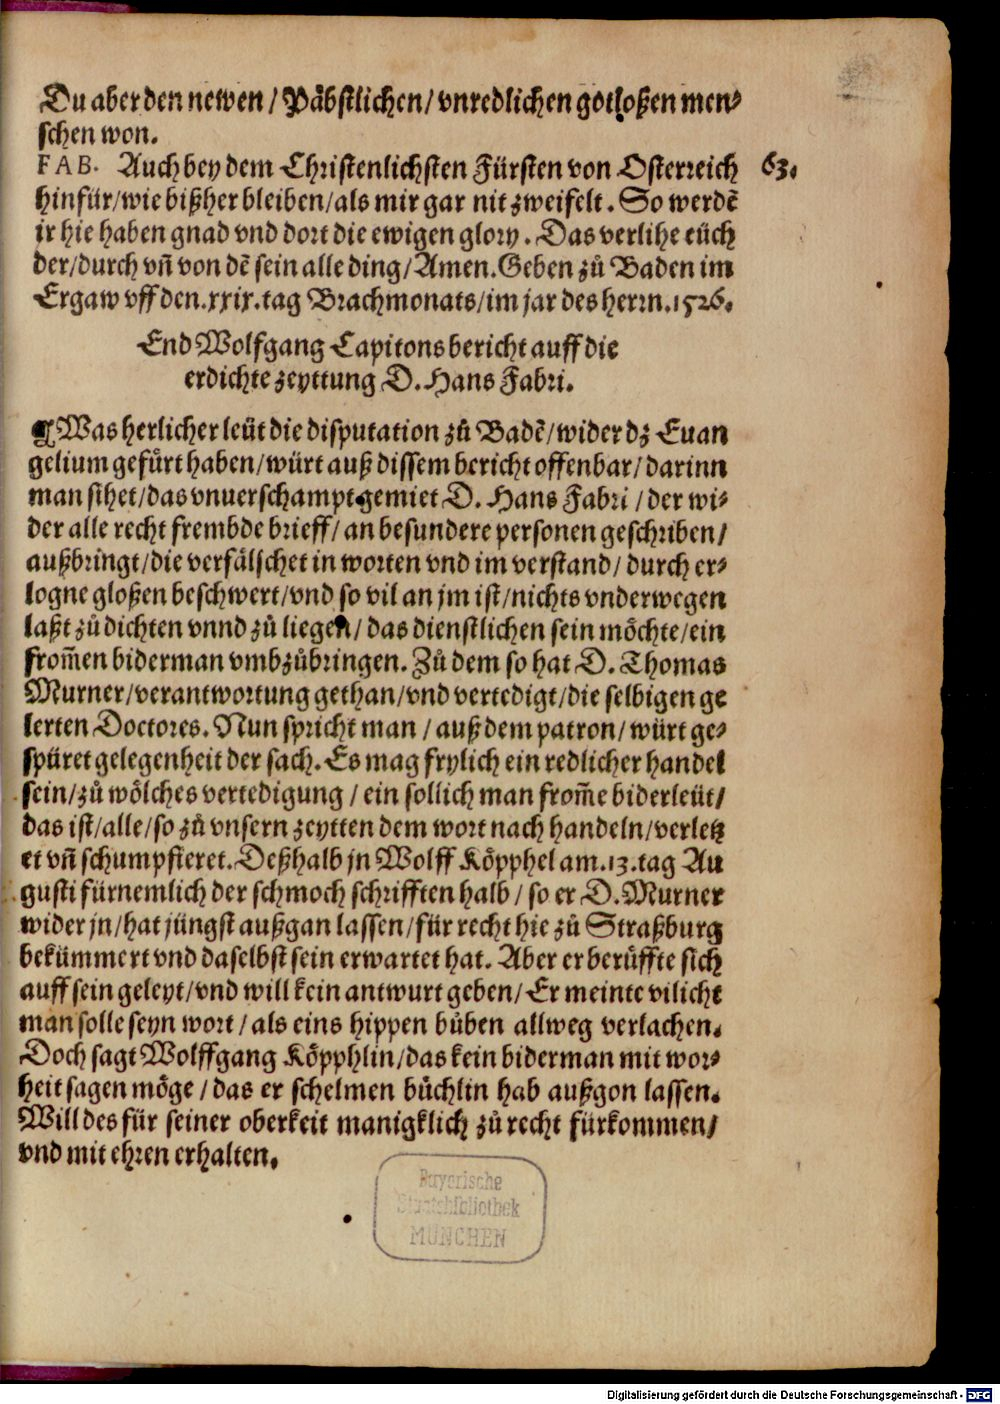 Du aber den newen / Päbstlichen / vnredlichen gotloßen men⸗
schen won.
FAB. Auch bey dem Christenlichsten Fürsten von Osterreich 63.
hinfür / wie bißher bleiben / als mir gar nit zweifelt. So werdẽ
ir hie haben gnad vnd dort die ewigen glory. Das verlihe eüch
der / durch vñ von dẽ sein alle ding / Amen. Geben zů Baden im
Ergaw vff den .xxix. tag Brachmonats / im jar des herrn. 1526.
End Wolfgang Capitons bericht auff die
erdichte zeyttung D. Hans Fabri.
¶ Was herlicher leüt die disputation zů Badẽ / wider dz Euan
gelium gefürt haben / würt auß dissem bericht offenbar / darinn
man sihet / das vnuerschampt gemiet D. Hans Fabri / der wi⸗
der alle recht frembde brieff / an besundere personen geschriben /
außbringt / die verfälschet in worten vnd im verstand / durch er⸗
logne gloßen beschwert / vnd so vil an jm ist / nichts vnderwegen
laßt zů dichten vnnd zů liegen / das dienstlichen sein möchte / ein
from̃en biderman vmbzůbringen. Zů dem so hat D. Thomas
Murner / verantwortung gethan / vnd vertedigt / die selbigen ge
lerten Doctores. Nun spricht man / auß dem patron / würt ge⸗
spüret gelegenheit der sach. Es mag frylich ein redlicher handel
sein / zů wölches vertedigung / ein sollich man from̃e biderleüt /
das ist / alle / so zů vnsern zeytten dem wort nach handeln / verletz
et vñ schumpfieret. Deßhalb jn Wolff Köpphel am .13. tag Au
gusti fürnemlich der schmoch schrifften halb / so er D. Murner
wider jn / hat jüngst außgan lassen / für recht hie zů Straßburg
bekümmert vnd daselbst sein erwartet hat. Aber er berůffte sich
auff sein geleyt / vnd will kein antwurt geben / Er meinte vilicht
man solle seyn wort / als eins hippen bůben allweg verlachen.
Doch sagt Wolffgang Köpphlin / das kein biderman mit wor⸗
heit sagen möge / das er schelmen büchlin hab außgon lassen.
Will des für seiner oberkeit manigklich zů recht fürkommen /
vnd mit ehren erhalten.
Bayerische
Staatsbibliothek
MÜNCHEN
Digitalisierung gefördert durch die Deutsche Forschungsgemeinschaft - DFG